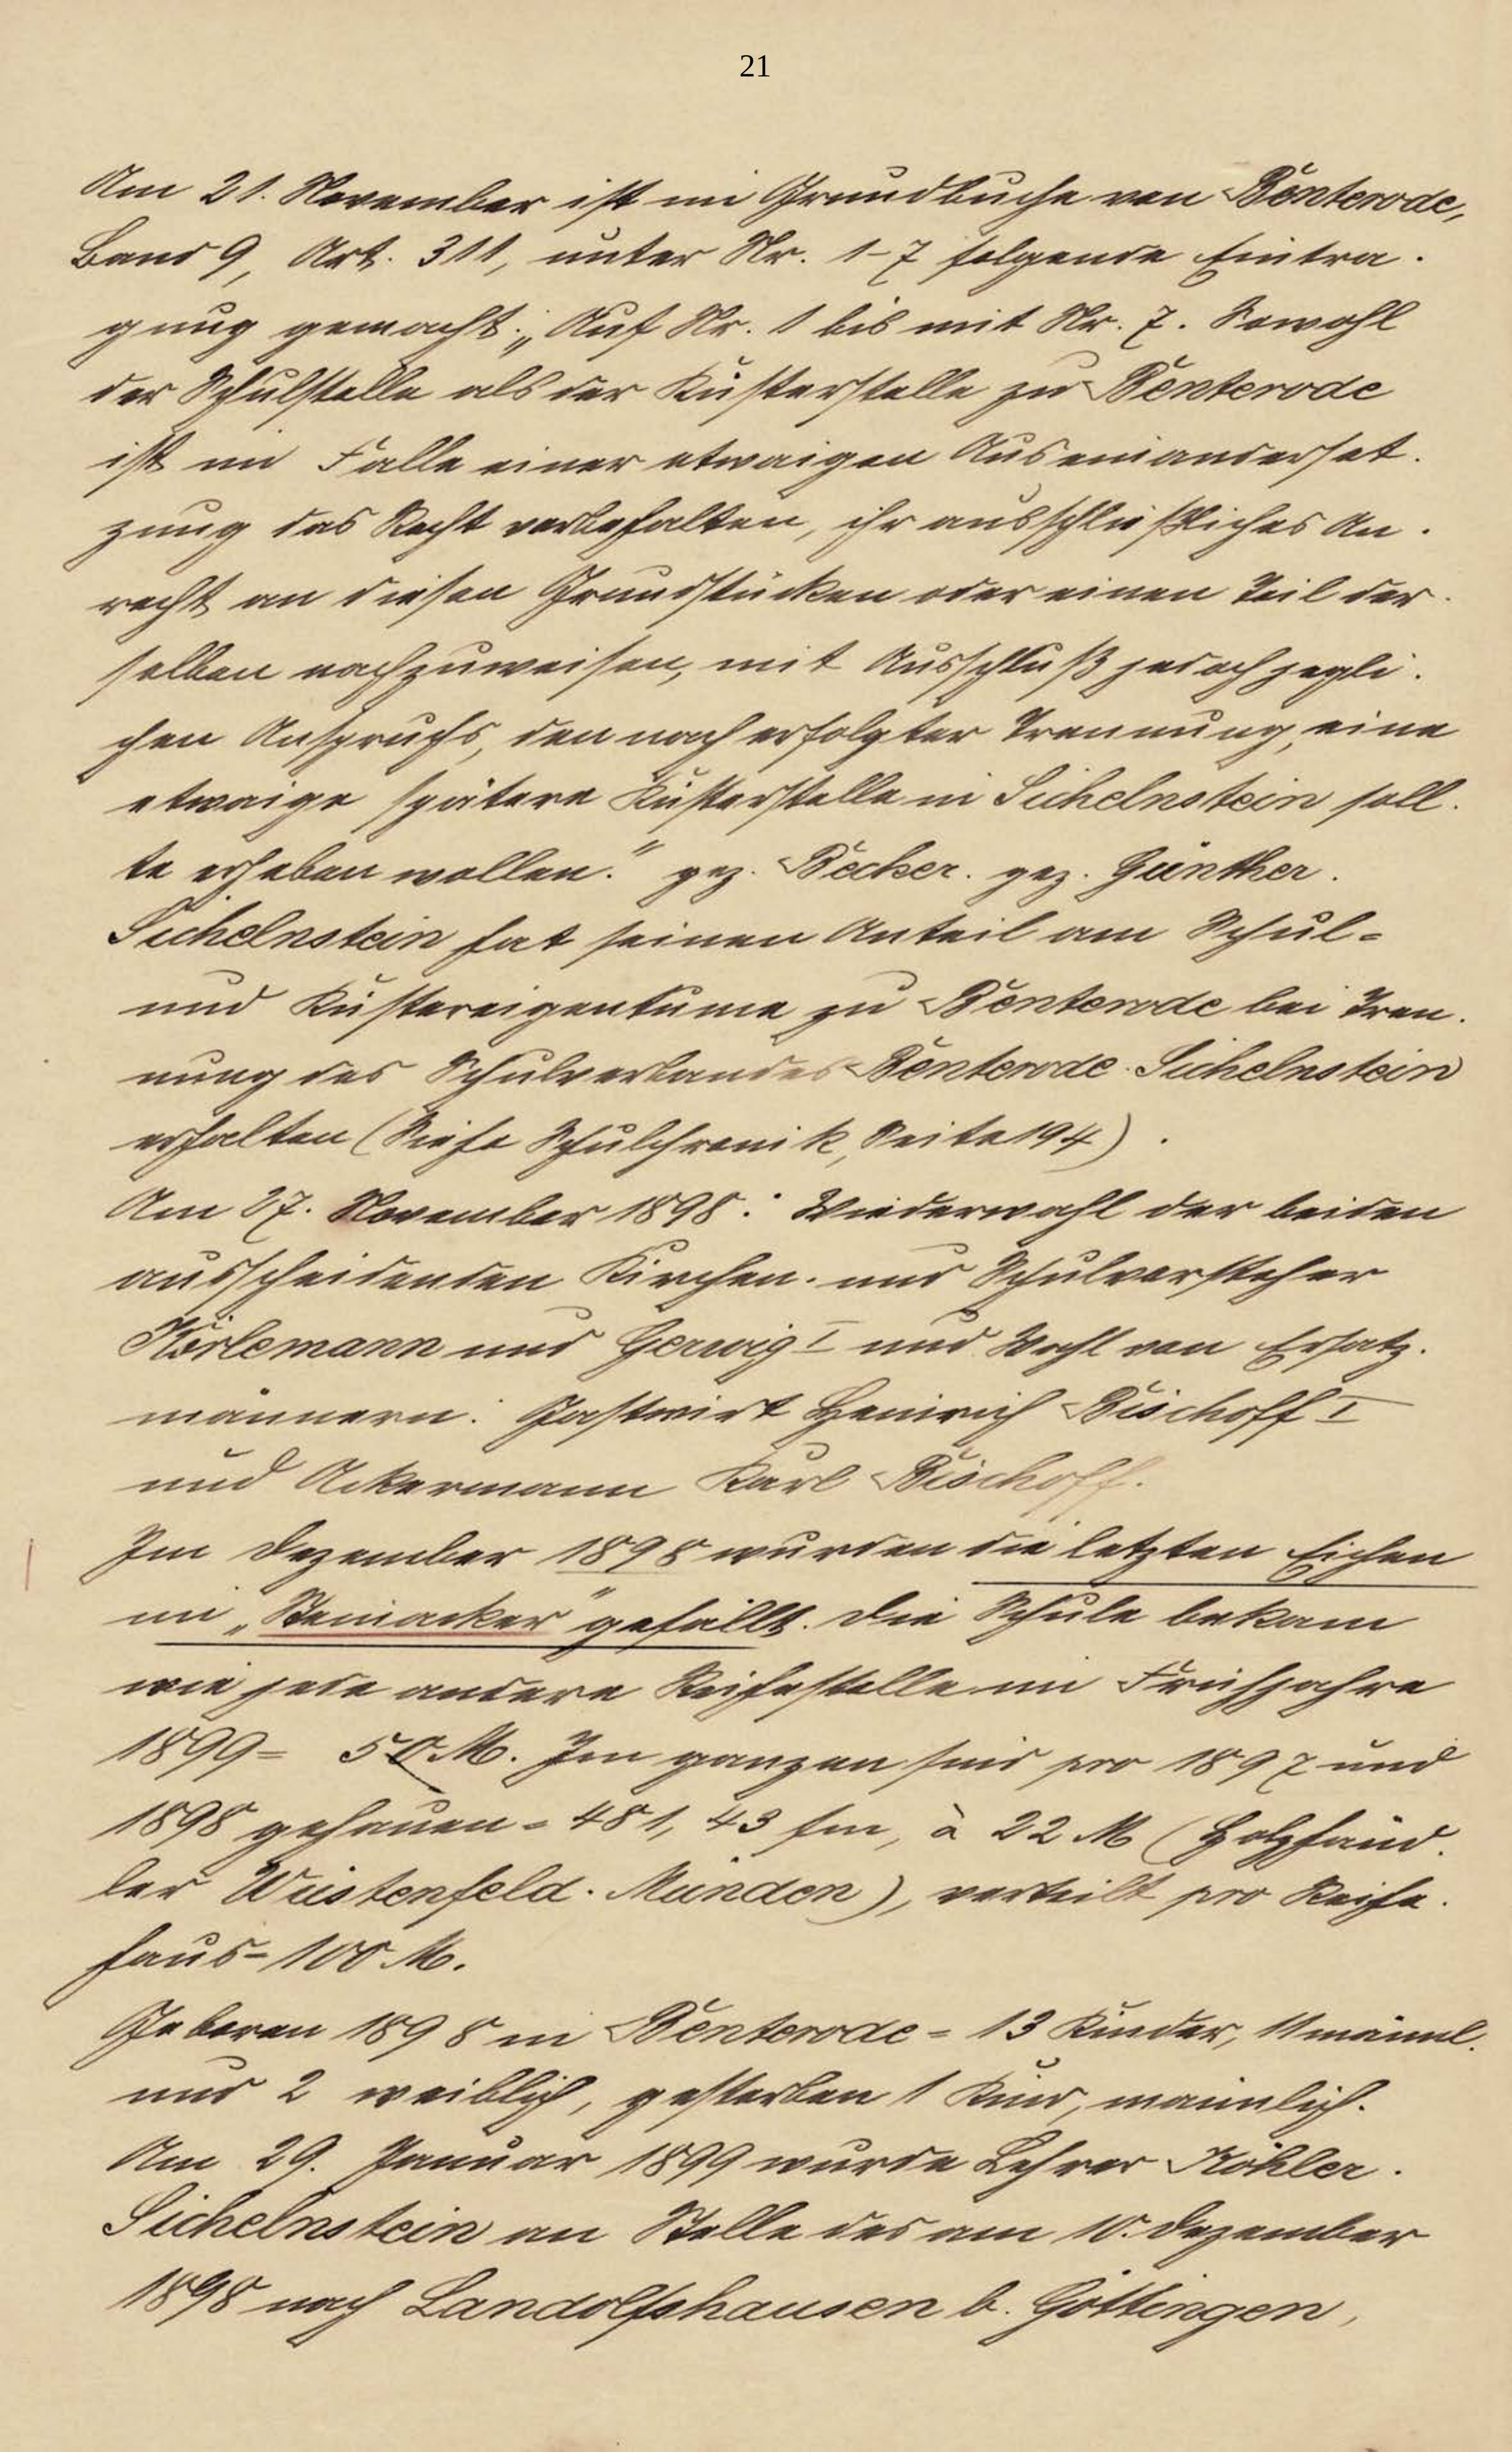 21
Am 21. November ist im Grundbuche von Benterode,
Band 9, Art. 311, unter Nr. 1-7 folgende Eintra-
gung gemacht: „Auf Nr. 1 bis mit Nr. 7. Sowohl
der Schulstelle als der Küsterstelle zu Benterode
ist im Falle einer etwaigen Auseinanderset-
zung das Recht vorbehalten, ihr ausschließliches An-
recht an diesen Grundstücken oder einen Teil der-
selben nachzuweisen, mit Ausschluß jedoch jegli-
chen Anspruchs, den nach erfolgter Trennung, eine
etwaige spätere Küsterstelle in Sichelnstein soll-
te erheben wollen." gez. Becker. gez. Günther.
Sichelnstein hat seinen Anteil am Schul-
und Küstereigentume zu Benterode bei Tren-
nung des Schulverbandes Benterode-Sichelnstein
erhalten (Siehe Schulchronik, Seite 194).
Am 27. November 1898: Wiederwahl der beiden
ausscheidenden Kirchen- und Schulvorsteher
Körlemann und Gerwig I und Wahl von Ersatz-
männern: Gastwirt Heinrich Bischoff I
und Ackermann Karl Bischoff.
Im Dezember 1898 wurden die letzten Eichen
im „Steinacker" gefällt. Die Schule bekam
wie jede andere Reihestelle im Frühjahre
1899 = 50 M. Im ganzen sind pro 1897 und
1898 gehauen = 481,43 fm, à 22 M (Holzhänd-
ler Wüstenfeld-Münden), verteilt pro Reihe-
haus = 100 M.
Geboren 1898 in Benterode = 13 Kinder, 11 männl.
und 2 weiblich, gestorben 1 Kind, männlich.
Am 29. Januar 1899 wurde Lehrer Köhler-
Sichelnstein an Stelle des am 10. Dezember
1898 nach Landolfshausen b. Göttingen,